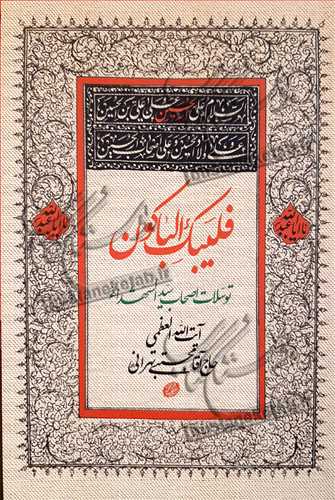 السلام علی الحسین و علی علی بن الحسین
و علی اولاد الحسین و علی اصحاب الحسین
فلیبک الباکون
یا اباعبدالله
یا اباعبدالله
توسلات اصحاب سیدالشهداء
آیت الله العظمی
حاج آقا مجتبی تهرانی
lousianehejab.ir